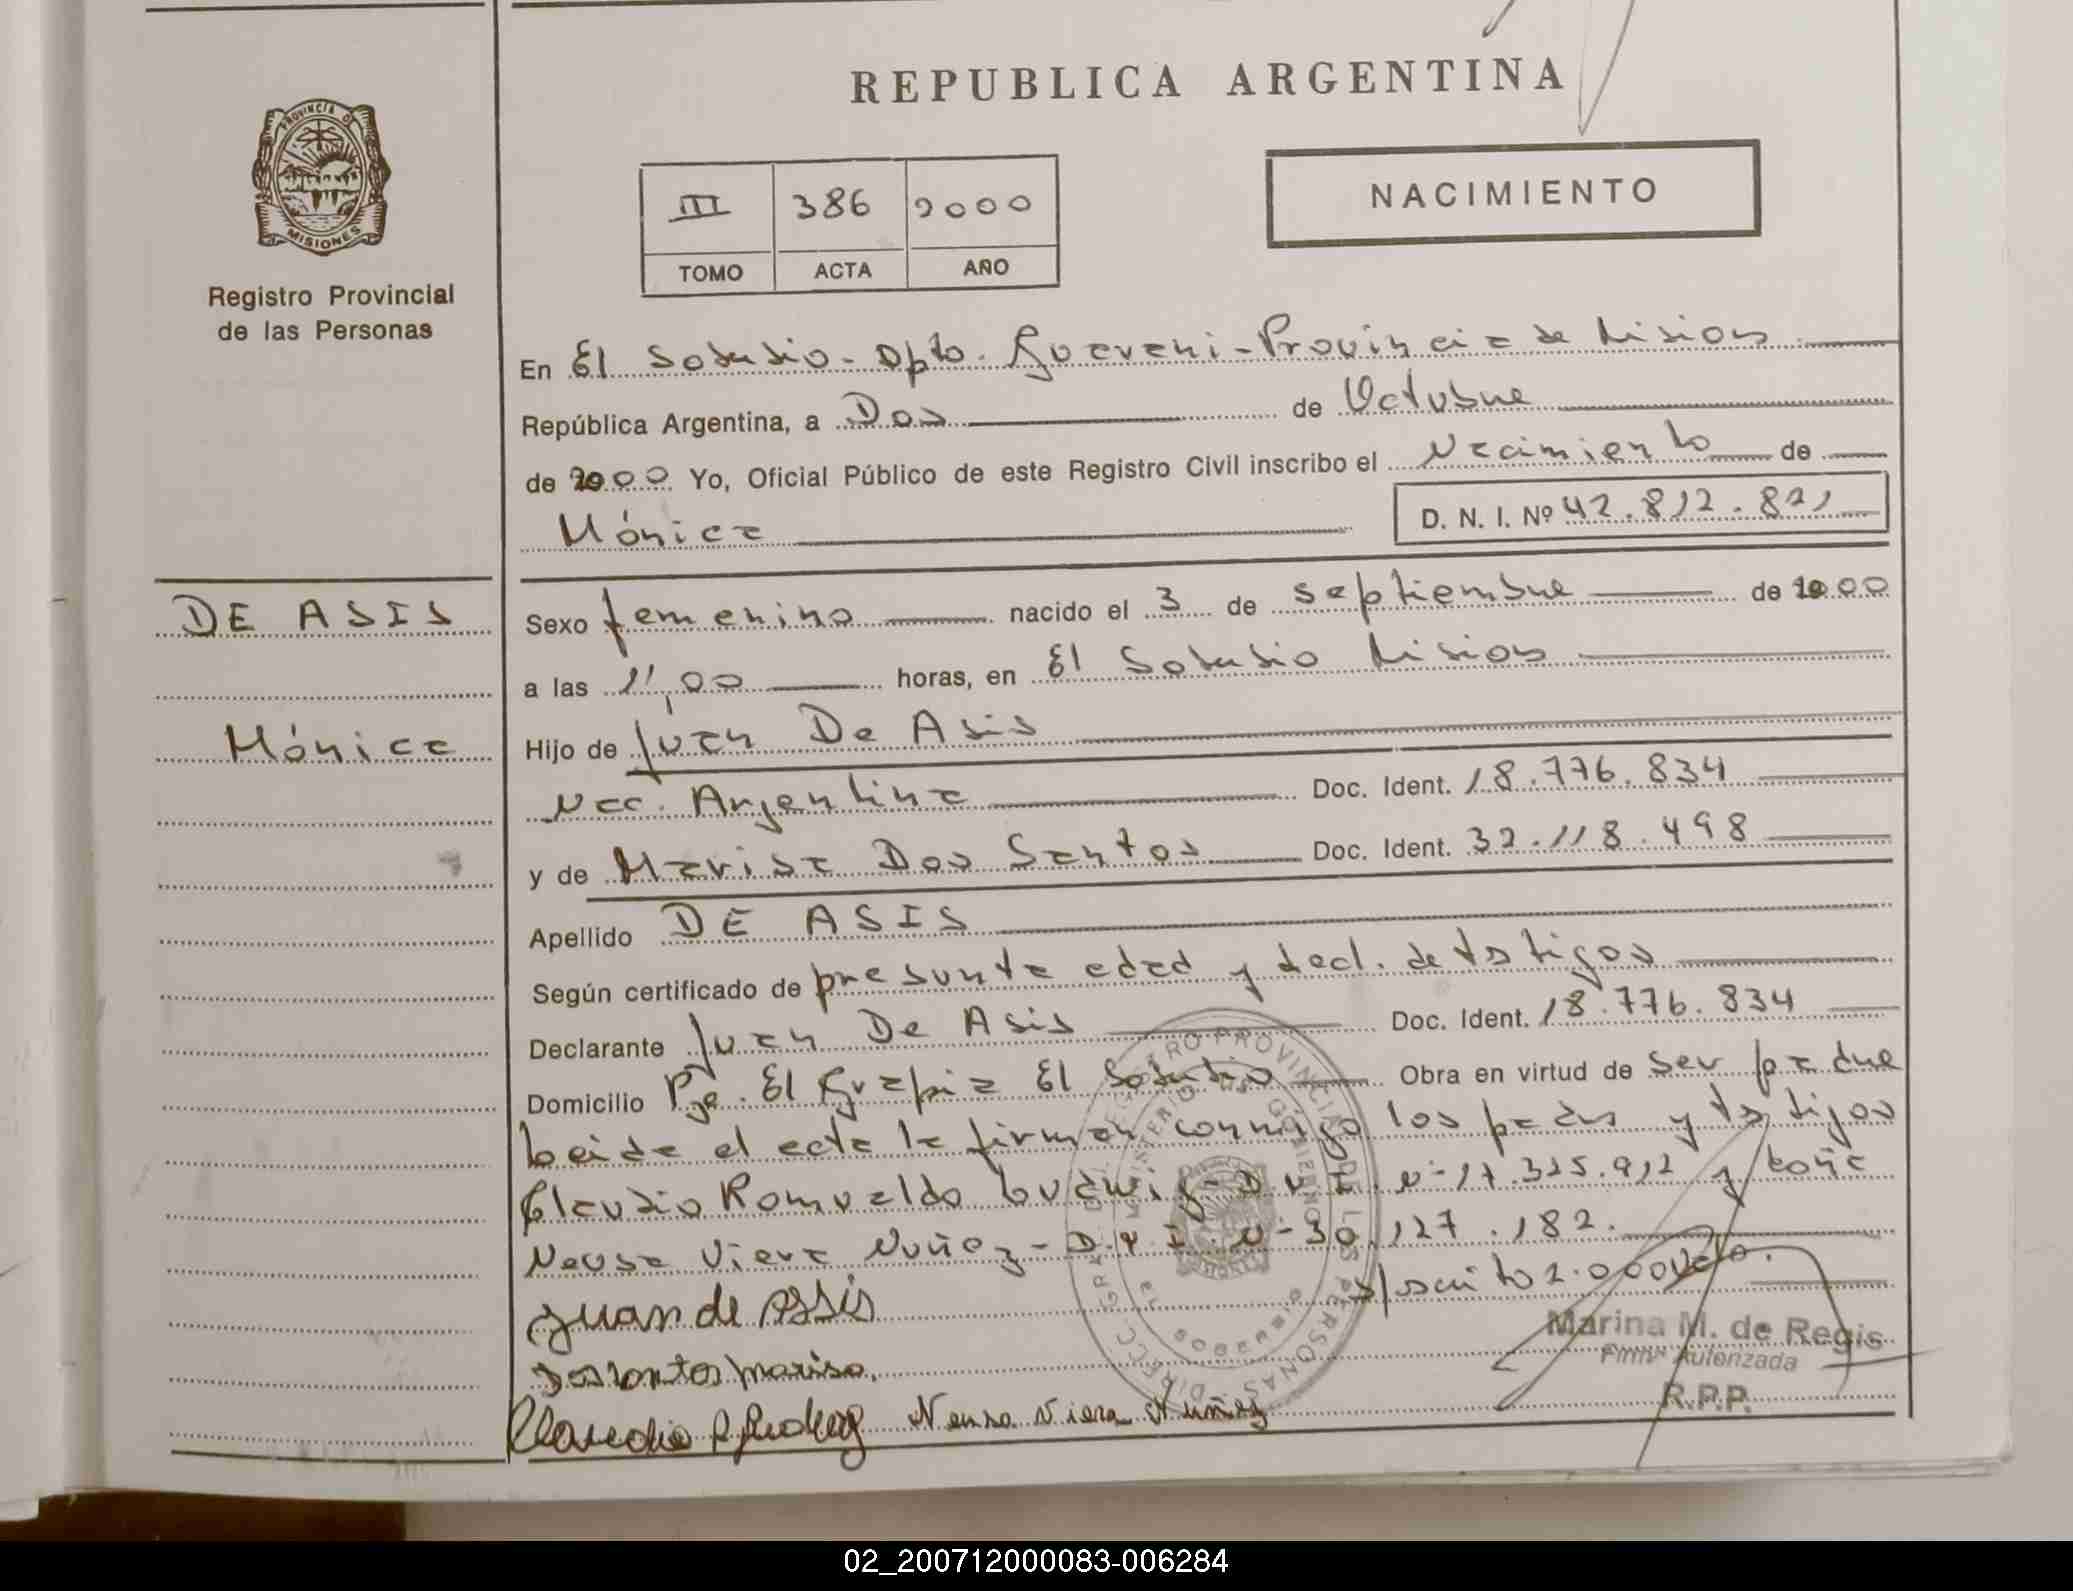 REPUBLICA ARGENTINA
PROVINCIA DE
MISIONES
Registro Provincial
de las Personas
III 386 2000
TOMO ACTA AÑO
NACIMIENTO
En El Soberbio - Dpto. Guarani - Provincia de Misiones
República Argentina, a Dos de Octubre
de 2000 Yo, Oficial Público de este Registro Civil inscribo el Nacimiento de
Mónica
D. N. I. Nº 42.812.821
DE ASIS
Mónica
Sexo femenino nacido el 3 de septiembre de 2000
a las 11,00 horas, en El Soberbio Misiones
Hijo de Juan De Asis
Nac. Argentina Doc. Ident. 18.776.834
y de Marisa Dos Santos Doc. Ident. 32.118.498
Apellido DE ASIS
Según certificado de presunta edad y decl. de testigos
Declarante Juan De Asis Doc. Ident. 18.776.834
Domicilio Pje. El Guapia El Soberbio Obra en virtud de ser padre
Leida el acta la firman conmigo los padres y testigos
Claudio Romualdo Ludwig - D.N.I. Nº 17.325.912 y doña
Neusa Viera Nuñez - D.N.I. Nº 30.127.182.
s/scrito 2.000 Vale.
Juan de Assis
Dos santos marisa.
Marina M. de Regis
Firma Autorizada
R.P.P.
Claudio R Ludwig Neusa Viera Nuñez
02_200712000083-006284